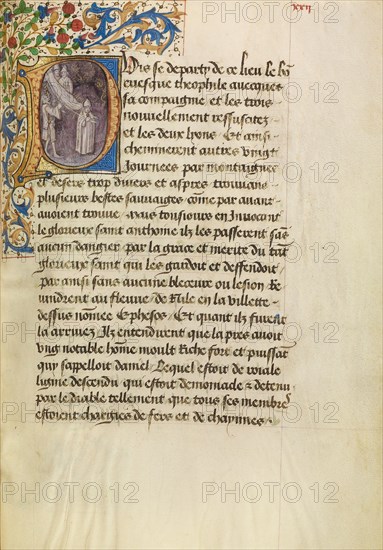 xxii
Puis se departy de ce lieu le bõ
euesque theophile auecques
sa compaignie et les trois
nouuellement ressuscitez
et les deux lyons Et ainsi
cheminerent autres vingt
Journees par montaignes
et desers trop diuers et aspres trouuans
plusieurs bestes sauuaiges cõme par auant
auoient trouue Mais tousiours en Inuocant
le glorieux saint anthoine ilz les passerent sãs
aucun dangier par la grace et merite du tãt
glorieux saint qui les gardoit et deffendoit
par ainsi sans aucune bleceure ou lesion Et
vindrent au fleuue de Nile en la villette
dessus nõmee Ephesos Et quant ilz furent
la arriuez Ilz entendirent que la pres auoit
vng notable hõme moult Riche fort et puissãt
quy sappelloit daniel Lequel estoit de roiale
lignie descendu qui estoit demoniacle & detenu
par le diable tellement que tous ses membres
estoient chargies de fers et de chaynnes
PHOTO12
PHOTO12
PHOTO12
PHOTO12
PHOTO12
PHOTO12